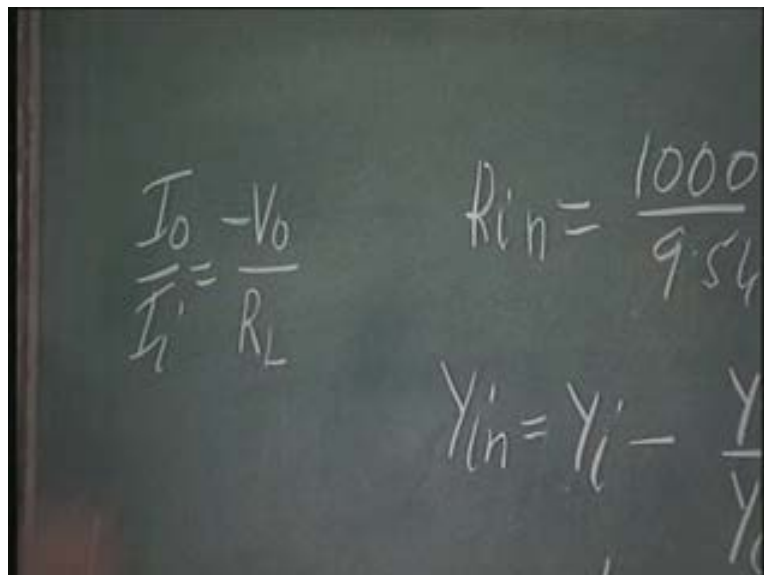 I₀/Iᵢ = -V₀/R_L
Rin = 1000/9.54
Yin = Yᵢ - Y/Y